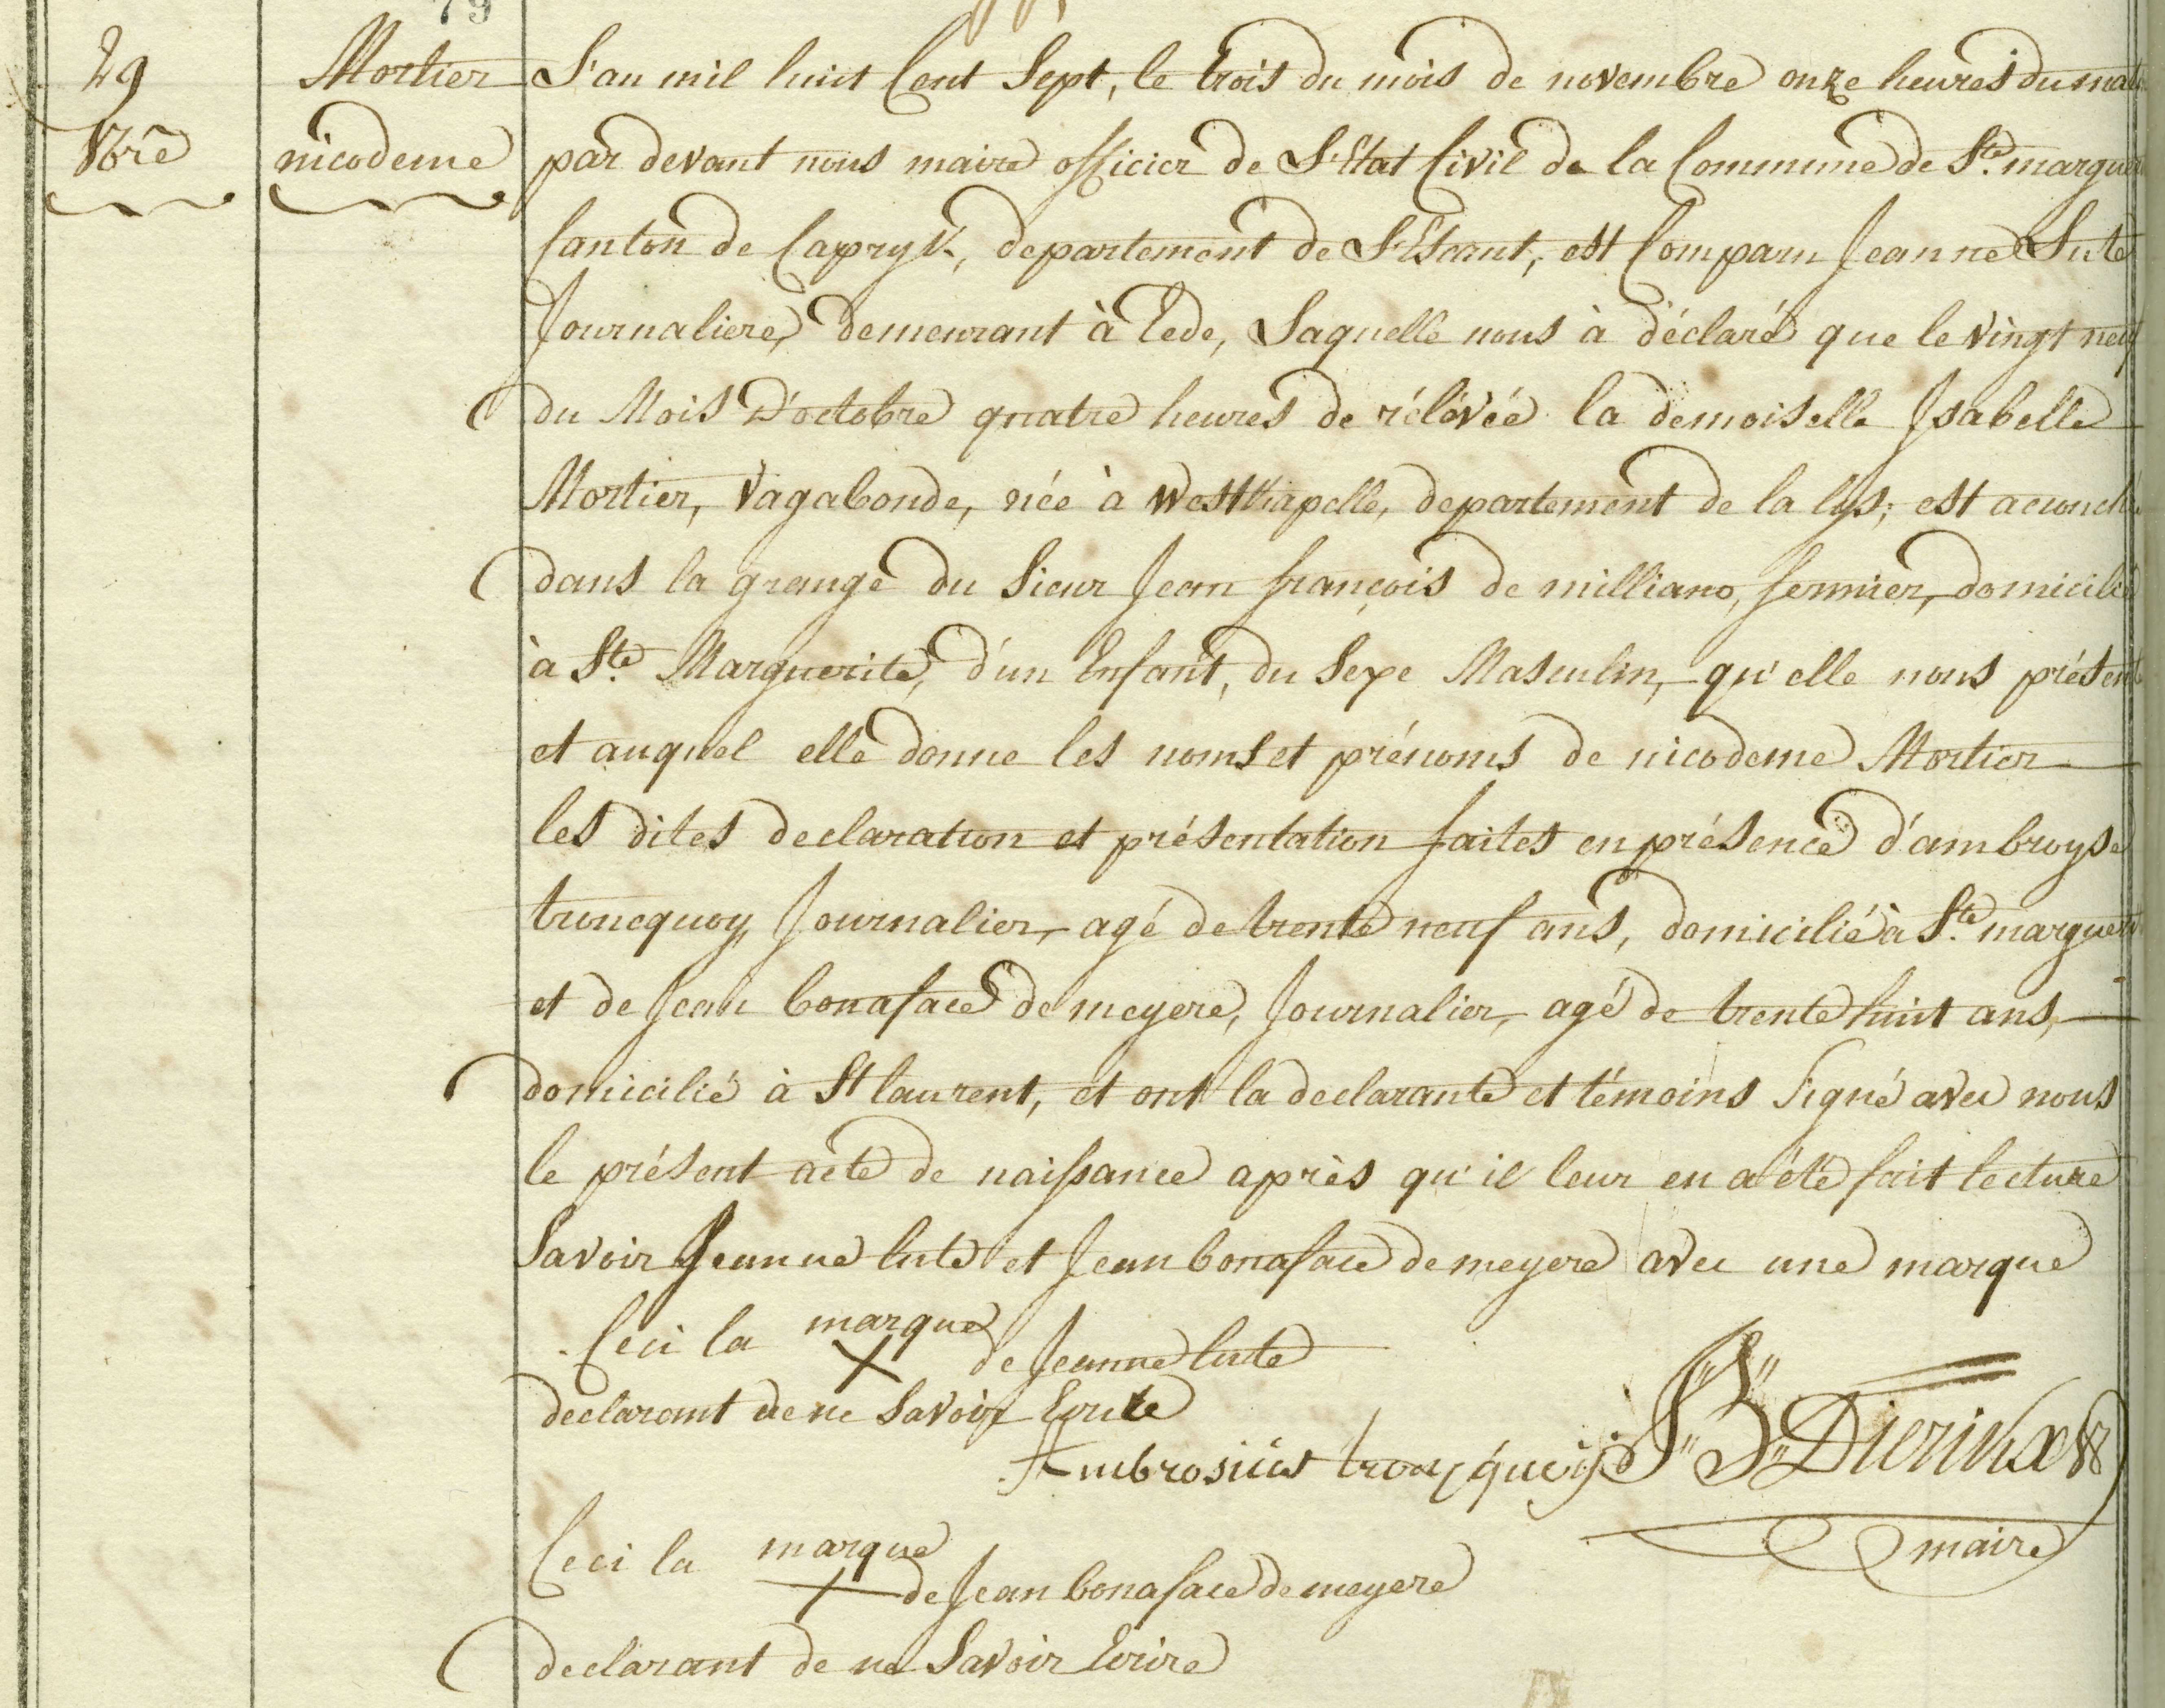 79
29 Mortier L'an mil huit Cent Sept, le trois du mois de novembre onze heures du matin
8bre nicodeme par devant nous maire officier de L'Etat Civil de la Commune de Ste marguerite
Canton de Capryk, departement de L'Escaut, est Comparu Jeanne Lute
Journaliere, demeurant à Eede, Laquelle nous à déclaré que le vingt neuf
du Mois D'octobre quatre heures de rélévée la demoiselle Isabelle
Mortier, Vagabonde, née à WestKapelle, departement de la lys; est acouchée
dans la grange du Sieur Jean françois de milliano, fermier, domicilié
à Ste Marguerite, d'un Enfant, du Sexe Masculin, qu'elle nous présente
et auquel elle donne les noms et prénoms de nicodeme Mortier
les dites declaration et présentation faites en présence d'ambroyse
troncquoy, Journalier, agé de trente neuf ans, domicilié à Ste marguerite
et de Jean bonaface de meyere, Journalier, agé de trente huit ans,
domicilié à St laurent, et ont la declarante et témoins Signé avec nous
le présent acte de naissance après qu'il leur en a été fait lecture
Savoir Jeanne lute et Jean bonaface de meyere avec une marque
Ceci la marque X de Jeanne lute
declarant de ne Savoir Ecrire
Ambrosius troncqueij J" B" Dierinckx
maire
Ceci la marque + de Jean bonaface de meyere
declarant de ne Savoir Ecrire